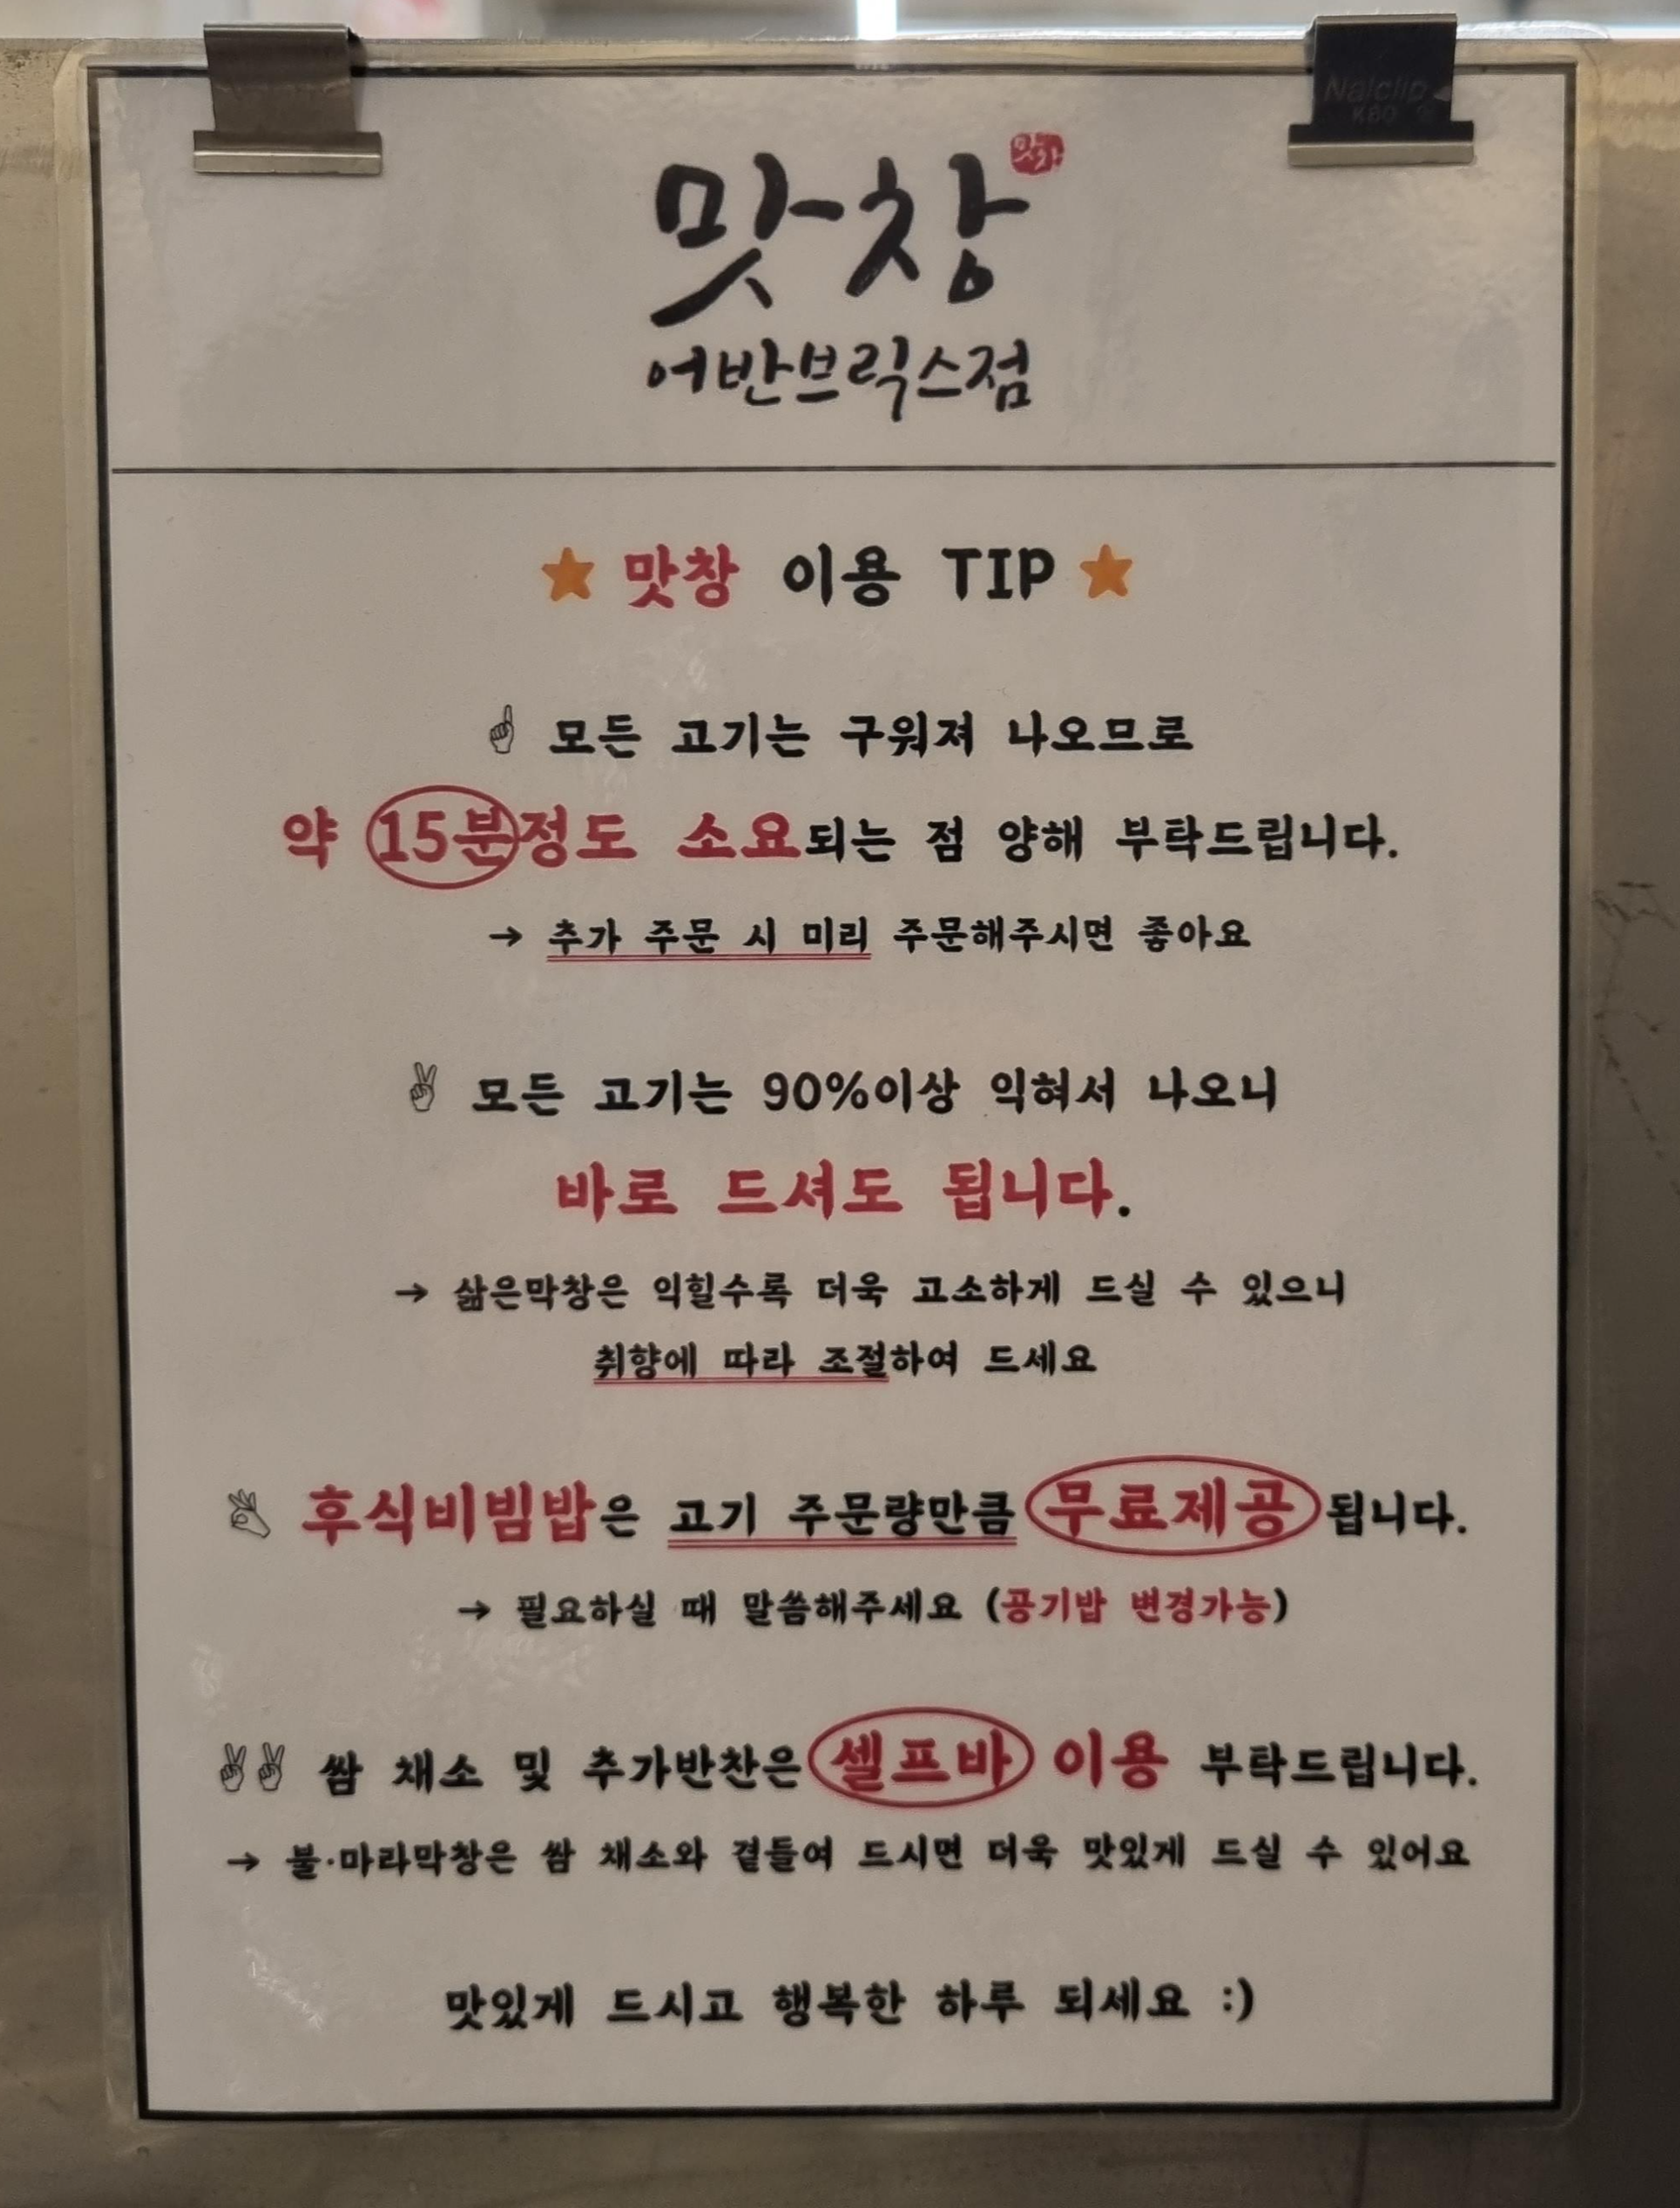 맛창
맛창
어반브릭스점
Nalclip
⭐ 맛창 이용 TIP ⭐
☝ 모든 고기는 구워져 나오므로
약 15분정도 소요되는 점 양해 부탁드립니다.
→ 추가 주문 시 미리 주문해주시면 좋아요
✌ 모든 고기는 90%이상 익혀서 나오니
바로 드셔도 됩니다.
→ 삶은막창은 익힐수록 더욱 고소하게 드실 수 있으니
취향에 따라 조절하여 드세요
👌 후식비빔밥은 고기 주문량만큼 무료제공 됩니다.
→ 필요하실 때 말씀해주세요 (공기밥 변경가능)
✌✌ 쌈 채소 및 추가반찬은 셀프바 이용 부탁드립니다.
→ 불·마라막창은 쌈 채소와 곁들여 드시면 더욱 맛있게 드실 수 있어요
맛있게 드시고 행복한 하루 되세요 :)